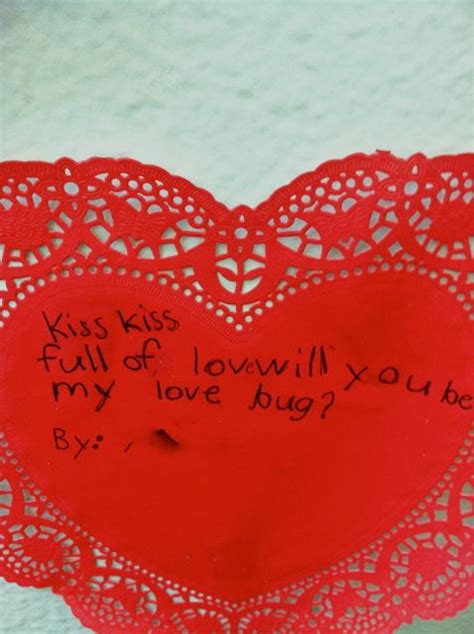 Kiss kiss
full of lovewill you be
my love bug?
By: